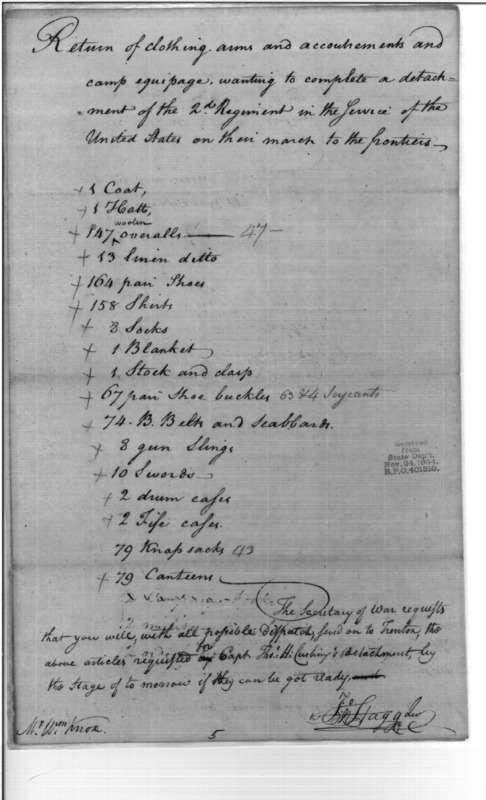 Return of clothing arms and accoutrements and
camp equipage. wanting to complete a detach=
ment of the 2d Regiment in the Service of the
United States on their march to the frontiers
1 Coat,
1 Hatt,
woolen
147 overalls 47
13 linen ditto
164 pair Shoes
158 Shirts
8 Socks
1 Blanket
1 Stock and clasp
67 pair Shoe buckles 63 & 4 Serjeants
74. B. Belts and Scabbards.
8 gun Slings
10 Swords
2 drum cases
2 Fife cases
79 Knapsacks 43
79 Canteens
Received
from
State Dep't,
Nov. 24, 1894.
R.P.O. 401310.
The Secretary of War requests
that you will, with all possible dispatch, send on to Trenton, the
for
above articles requested Capt Thos. H. Cushing's Detachment, by
the Stage of to morrow if they can be got ready
Stagg Junr
Mr. Wm Knox.
5